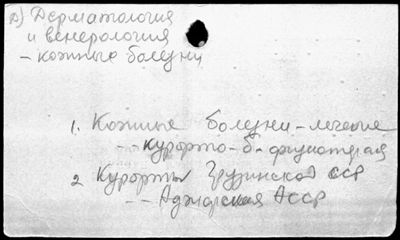 А) Дерматология
и венерология
- кожные болезни
1. Кожные болезни - лечение
-- курорто-б-физиотерапия
2 Курорты Грузинской ССР
-- Аджарская АССР